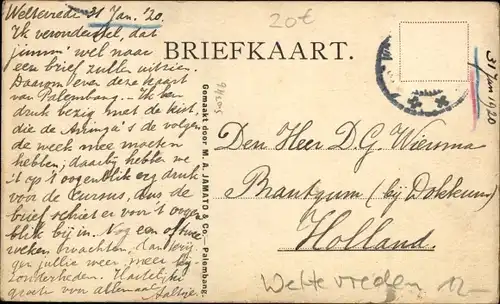 Weltevrede 31 Jan. '20.
Ik veronderstel, dat
jimm' wel naar
een brief zullen uitzien.
Daarom even deze kaart
van Palembang. — Ik ben
druk bezig met de kist,
die de A's de volgen
de week mee moeten
hebben; daarbij hebben we
't op 't oogenblik erg druk
voor de cursus, dus de
brief schiet er voor 't oogen
blik bij in. Nog een of twee
weken wachten, dan krij
gen jullie weer, meer bij
zonderheden. Hartelijke
groete voor allemaal
BRIEFKAART.
20€
31 Jan 1920
Gemaakt door M. A. JAMATO & Co.—Palembang.
Den Heer D. G. Wiersma
Brantgum (bij Dokkum)
Holland.
Weltevreden 12-